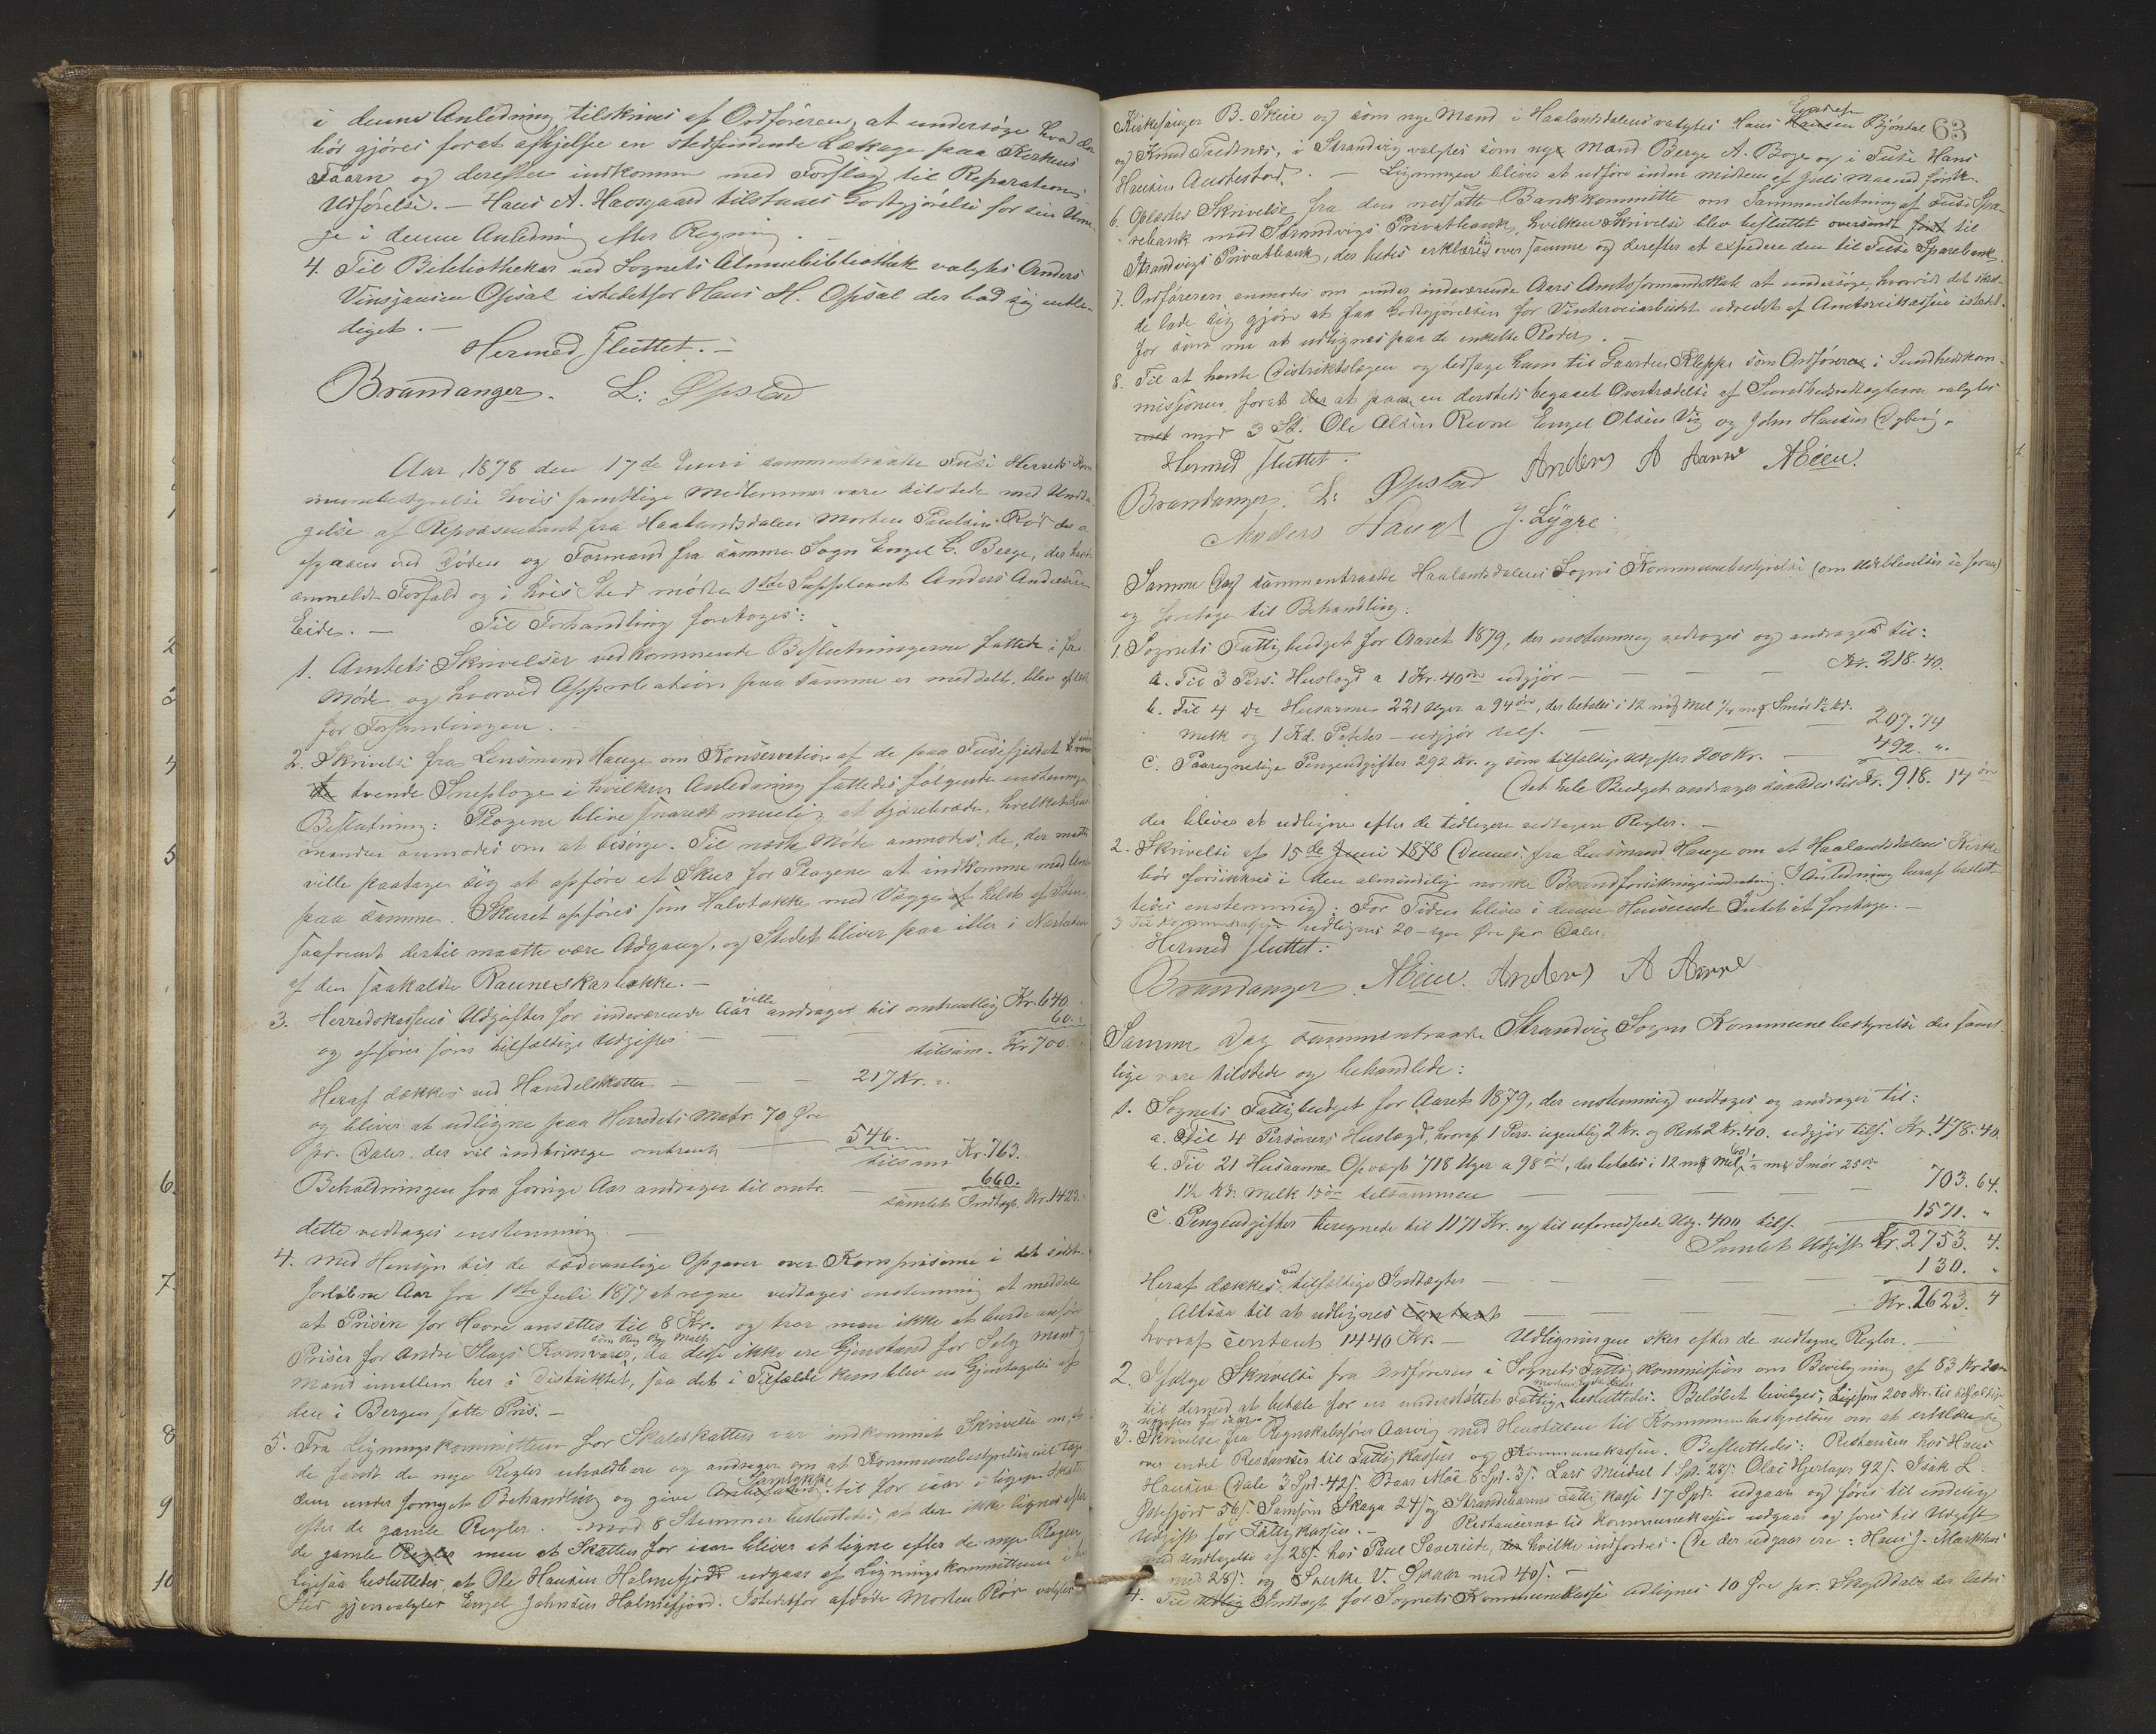 i denne Anledning tilskrives af Ordføreren, at undersøge hvad der
bør gjøres forat afhjelpe en stedfindende Lækage paa Kirkens
Taarn og derefter indkomme med Forslag til Reparationens
Udførelse. — Hans A. Havsgaard tilstaaes Godtgjørelse for sin Uma-
ge i denne Anledning efter Regning.
4. Til Bibliothekar ved Sognets Almuebibliothek valgtes Anders
Vinsjansen Opsal istedetfor Hans H. Opsal der bad sig entle-
diget. —
Hermed sluttet. —
Brandanger. L: Øpstad
Aar 1878 den 17de Juni sammentraadte Fuse Herreds Kom
munebestyrelse hvis samtlige Medlemmer vare tilstede med Undta
gelse af Repræsentant fra Haalandsdalen Morten Paulsen Rör der er
afgaaen ved Døden og Formand fra samme Sogn Engel L. Berge, der havde
anmeldt Forfald og i hvis Sted mødte 1ste Suppleant Anders Andersen
Eide. — Til Forhandling foretoges:
1. Amtets Skrivelser vedkommende Beslutningerne fattede i fra
Møde og hvorved Approbation paa samme er meddelt, blev oplæst
for Forsamlingen.
2. Skrivelse fra Lensmand Hauge om Konservation af de paa Fusefjeldet
de tvende Sneploge i hvilken Anledning fattedes følgende enstemmige
Beslutning: Plogene blive snarest muelig at tjærebræde, hvilket Lens
manden anmodes om at besørge. Til næste Møde anmodes de, der maatte
ville paatage sig at opføre et Skur for Plogene at indkomme med Anbud
paa samme. Skuret opføres som Halvtække med Vægge af helst af Sten
saafremt dertil maatte være Adgang, og Stedet bliver paa eller i Nærheden
af den saakaldte Rauneskarbakke. —
3. Herredskassens Udgifter for indeværende Aar ville andrages til omtrentlig Kr. 640.
og opføres som tilfældige Udgifter — 60.
tilsam. Kr 700.
Heraf dækkes ved Handelsskatten — 217 Kr. "
og bliver at udligne paa Herredets Matr. 70 Øre
pr. Daler, der vil indbringe omtrent — 546.
tilsam Kr. 763.
Beholdningen fra forrige Aar andrager til omtr. — 660.
samlet Indtægt. Kr. 1423.
dette vedtages enstemmig. —
4. Med Hensyn til de sædvanlige Opgaver over Kornpriserne i det sidst-
forløbne Aar fra 1ste Juli 1877 at regne vedtoges enstemmig at meddele
at Prisen for Havre ansættes til 8 Kr. og tror man ikke at burde anføre
Priser for andre Slags Kornvarer, som Rug Byg Malt, da disse ikke ere Gjenstand for Salg Mand og
Mand imellem her i Distriktet, saa det i Tilfælde kun blev en Gjentagelse af
den i Bergen satte Pris. —
5. Fra Ligningskommitteen for Skoleskatten var indkommet Skrivelse om, at
de fandt de nye Regler uholdbare og andrager om at Kommunebestyrelsen vil tage
dem under fornyet Behandling og give Samtykke til for iaar i ligne Skatten
efter de gamle Regler. Mod 8 Stemmer besluttedes, at der ikke lignes efter
de gamle Regler men at Skatten for iaar bliver at ligne efter de nye Regler,
Ligesaa besluttedes, at Ole Hansen Holmefjord udgaar af Ligningskommitteen i hvis
Sted gjenvalgtes Engel Johnsen Holmefjord. Istedetfor afdøde Morten Rör valgtes
63
Kirkesanger B. Skeie og som nye Mand i Haalandsdalen valgtes Hans Hansen Bjöndal
og Knud Tredenes, i Strandvig valgtes som nye Mand Berge A. Boge og i Fuse Hans
Hansen Austestad. — Ligningen bliver at udføre inden Midten af Juli Maaned förstk.
6. Oplæstes Skrivelse fra den nedsatte Bankkommitte om Sammenslutning af Fuse Spa-
rebank med Strandvigs Privatbank, hvilken Skrivelse blev besluttet oversendt først til
Strandvigs Privatbank, der bedes erklære sig over samme og derefter at expedere den til Fuse Sparebank.
7. Ordføreren anmodes om under indeværende Aars Amtsformandskab at undersøge, hvorvidt det sked-
de lade sig gjöre at faa Godtgjørelsen for Vinterveiarbeidet udredet af Amtsveikassen istedet-
for som nu at udlignes paa de enkelte Roder. —
8. Til at hente Distriktslægen og ledsage ham til Gaarden Kleppe som Ordfører i Sundhedskom-
missjonen forat der at paase en dersteds begaaet Overtrædelse af Sundhedsvedtægterne valgtes
med 3 St. Ole Olsen Revne Engel Olsen Vig og John Hansen Dyberg. "
Hermed sluttet.
Brandanger. L: Øpstad Anders A Aarre AEien.
Anders Haugl J. Lygre
Samme Dag sammentraadte Haalandsdalens Sogns Kommunebestyrelse (om Udeblivelser se foran)
og foretoge til Behandling:
1. Sognets Fattigbudget for Aaret 1879, der enstemmig vedtoges og andrages til:
a. Til 3 Pers. Huslægd a 1 Kr. 40 öre udgjör — — — Kr. 218. 40.
b. Til 4 Do Husarme 221 Uger a 94 öre, der betales i 12 m Mel 1/4 m Smør 1 1/2 Kd.
Melk og 1 Kd. Poteter — udgjör tils. — 207. 74
C. Paaregnelige Pengeudgifter 292 Kr. og som tilfældige Udgifter 200 Kr. — 492. "
Det hele Budget andrages saaledes til Kr. 918. 14 öre
der bliver at udligne efter de tidligere vedtagne Regler. —
2. Skrivelse af 15de Juni 1878 Dennes. fra Lensmand Hauge om at Haalandsdalens Kirke
bör forsikres i den almindelige norske Brandforsikringsindretning. I Anledning heraf beslut-
tedes enstemmig: For Tiden bliver i denne Henseende Intet at foretage. —
3 Til Kommunekassen udlignes 20 — tyve Øre par Daler.
Hermed sluttet:
Brandanger. AEien. Anders A Aarre
Samme Dag sammentraadte Strandvig Sogns Kommunebestyrelse der samt-
lige vare tilstede og behandlede:
1. Sognets Fattigbudget for Aaret 1879, der enstemmig vedtoges og andrager til:
a. Til 4 Personers Huslægd, hvoraf 1 Pers. ugentlig 2 Kr. og Resten 2 Kr. 40. udgjör tils. Kr. 478. 40.
b. Til 21 Husarme Opvægt 718 Uger a 98 öre, der betales i 12 m Mel m Smör 25 öre
1 1/2 Kd. Melk 15 öre tilsammen — — — 703. 64.
c. Pengeudgifter beregnede til 1171 Kr. og til uforudseede Udg. 400 tils. — 1571. "
Samlet Udgift Kr. 2753. 4.
Heraf dækkes ved tilfældige Indtægter — — — 130. "
Altsaa til at udlignes contant — — Kr. 2623. 4
hvoraf contant 1440 Kr. — Udligningen skes efter de vedtagne Regler. —
2. Ifølge Skrivelse fra Ordføreren i Sognets Fattigkommission om Bevilgning af 63 Kr
til dermed at betale for en understöttet Fattig, besluttedes: Beløbet bevilges, ligesom 200 Kr. til tilfældige
Udgifter for iaar.
3. Skrivelse fra Regnskabsfører Aarvig med Henstillen til Kommunebestyrelsen om at erklære sig
over endel Restanser til Fattigkassen og Kommunekassen. Besluttedes: Restancen hos Hans
Hansen Dale 3 Spd. 42 s. Baar Moe 8 Spd. 3 s. Lars Meidell 1 Spd. 28 s. Olai Hjertager 92 s. Isak L.
Østefjord 56 s. Samson Skaga 24 s. og Strandebarms Fattigkasse 17 Spd. udgaar og føres til endelig
Udgift for Fattigkassen. — Restancerne til Kommunekassen udgaar og føres til Udgift
med Undtagelse af 28 s. hos Paul Sævereide, hvilke indfordres. De der udgaar ere: Hans J. Markhus
med 28 s. og Sverke V. Skaar med 40 s. —
4. Til Indtægt for Sognets Kommunekasse udlignes 10 Øre pr. Skylddaler der bedes